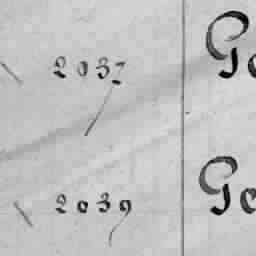 2037 Ge
2039 Ge